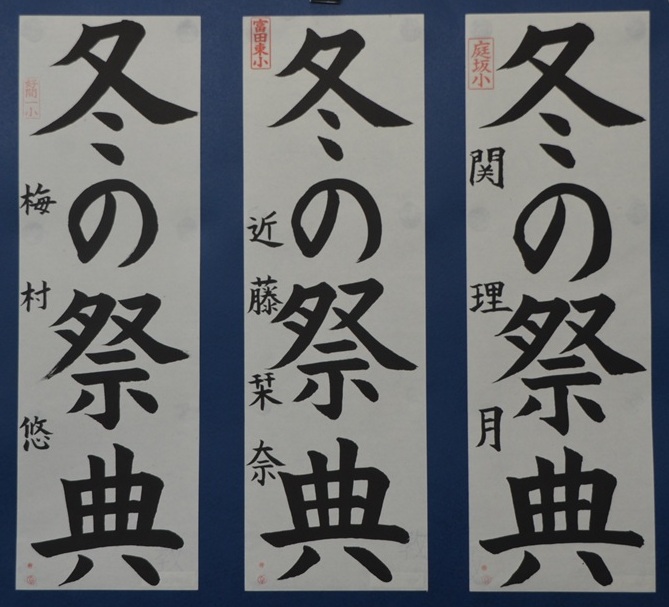 庭坂小
冬の祭典
関理月
富田東小
冬の祭典
近藤栞奈
冬の祭典
梅村悠